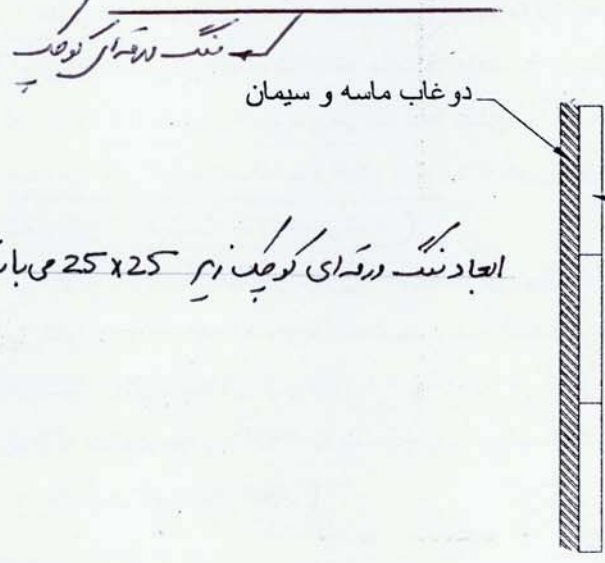 سنگ ورقه‌ای کوچک
دوغاب ماسه و سیمان
ابعاد سنگ ورقه‌ای کوچک زیر 25x25 می‌باشد